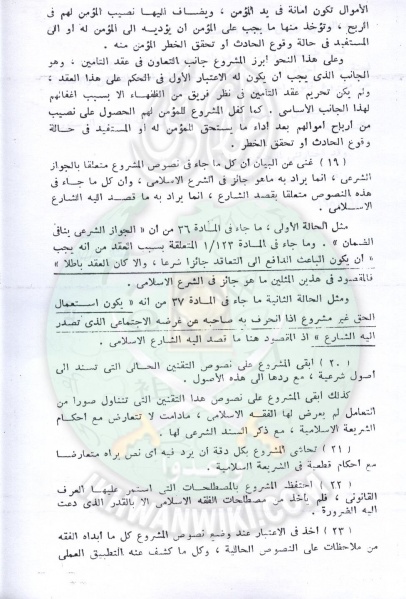 الأموال تكون أمانة في يد المؤمن ، ويضاف اليها نصيب المؤمن لهم في
الربح ، وتؤخذ منها ما يجب على المؤمن أن يؤديه الى المؤمن له أو الى
المستفيد في حالة وقوع الحادث أو تحقق الخطر المؤمن منه .
وعلى هذا النحو أبرز المشروع جانب التعاون في عقد التأمين ، وهو
الجانب الذى يجب أن يكون له الاعتبار الأول في الحكم على هذا العقد ،
ولم يكن تحريم عقد التأمين في نظر فريق من الفقهاء الا بسبب اغفالهم
لهذا الجانب الأساسى . كما كفل المشروع للمؤمن لهم الحصول على نصيب
من أرباح أموالهم بعد أداء ما يستحق للمؤمن له أو المستفيد في حالة
وقوع الحادث أو تحقق الخطر .
( ١٩ ) غنى عن البيان أن كل ما جاء في نصوص المشروع متعلقا بالجواز
الشرعى ، انما يراد به ماهو جائز في الشرع الاسلامى ، وأن كل ما جاء في
هذه النصوص متعلقا بقصد الشارع ، انما يراد به ما قصد اليه الشارع
الاسلامى .
مثل الحالة الأولى ، ما جاء في المادة ٣٦ من أن « الجواز الشرعى ينافى
الضمان » . وما جاء في المادة ١/١٢٣ المتعلقة بسبب العقد من أنه يجب
« أن يكون الباعث الدافع الى التعاقد جائزا شرعا ، والا كان العقد باطلا »
فالمقصود في هذين المثلين ما هو جائز في الشرع الاسلامى .
ومثل الحالة الثانية ما جاء في المادة ٣٧ من أنه « يكون استعمال
الحق غير مشروع اذا انحرف به صاحبه عن غرضه الاجتماعى الذى قصد
اليه الشارع » اذ المقصود هنا ما قصد اليه الشارع الاسلامى .
( ٢٠ ) أبقى المشروع على نصوص التقنين الحالى التى تستند الى
أصول شرعية ، مع ردها الى هذه الأصول .
كذلك أبقى المشروع على نصوص هذا التقنين التى تتناول صورا من
التعامل لم يعرض لها الفقه الاسلامى ، مادامت لا تتعارض مع أحكام
الشريعة الاسلامية ، مع ذكر السند الشرعى لها .
( ٢١ ) تحاشى المشروع بكل دقة أن يرد فيه أى نص يراه متعارضا
مع أحكام قطعية في الشريعة الاسلامية .
( ٢٢ ) احتفظ المشروع بالمصطلحات التى استمر عليها العرف
القانونى ، فلم يأخذ من مصطلحات الفقه الاسلامى الا بالقدر الذى دعت
اليه الضرورة .
( ٢٣ ) أخذ في الاعتبار عند وضع نصوص المشروع كل ما أبداه الفقه
من ملاحظات على النصوص الحالية ، وكل ما كشف عنه التطبيق العملى
IKHWANWIKI.COM